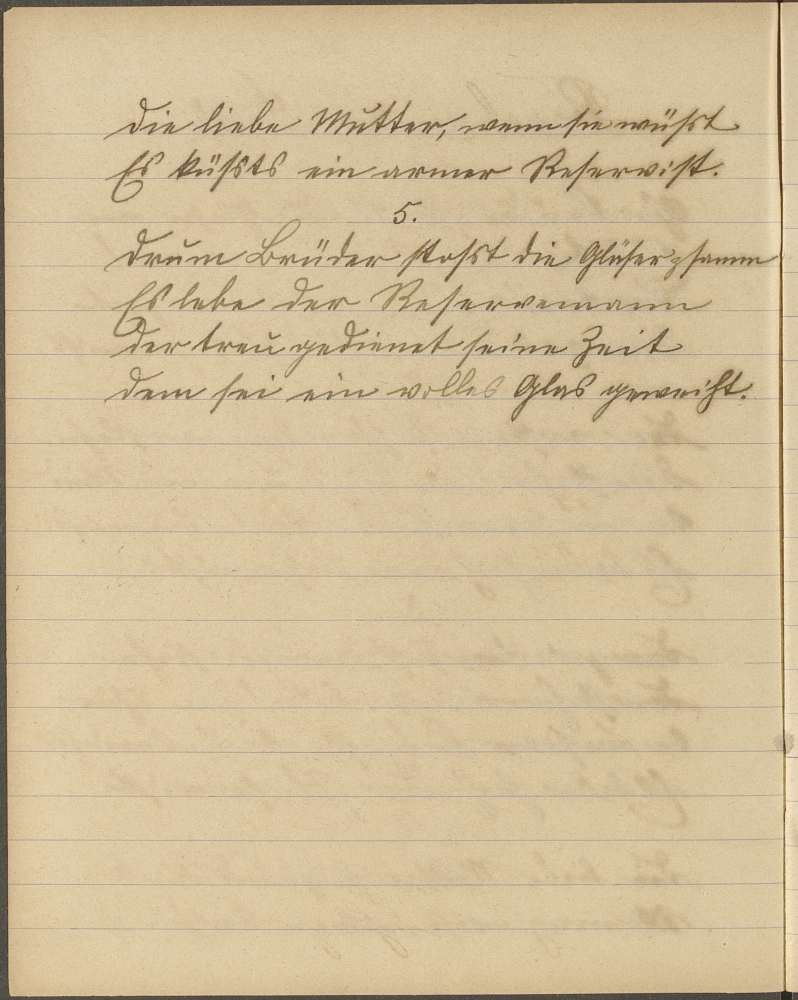 die liebe Mutter, wenn sie wüßt
Es küßts ein armer Reservist.
5.
Drum Brüder stoßt die Gläser zsamm
Es lebe der Reservemann
der treu gedienet seine Zeit
dem sei ein volles Glas geweiht.